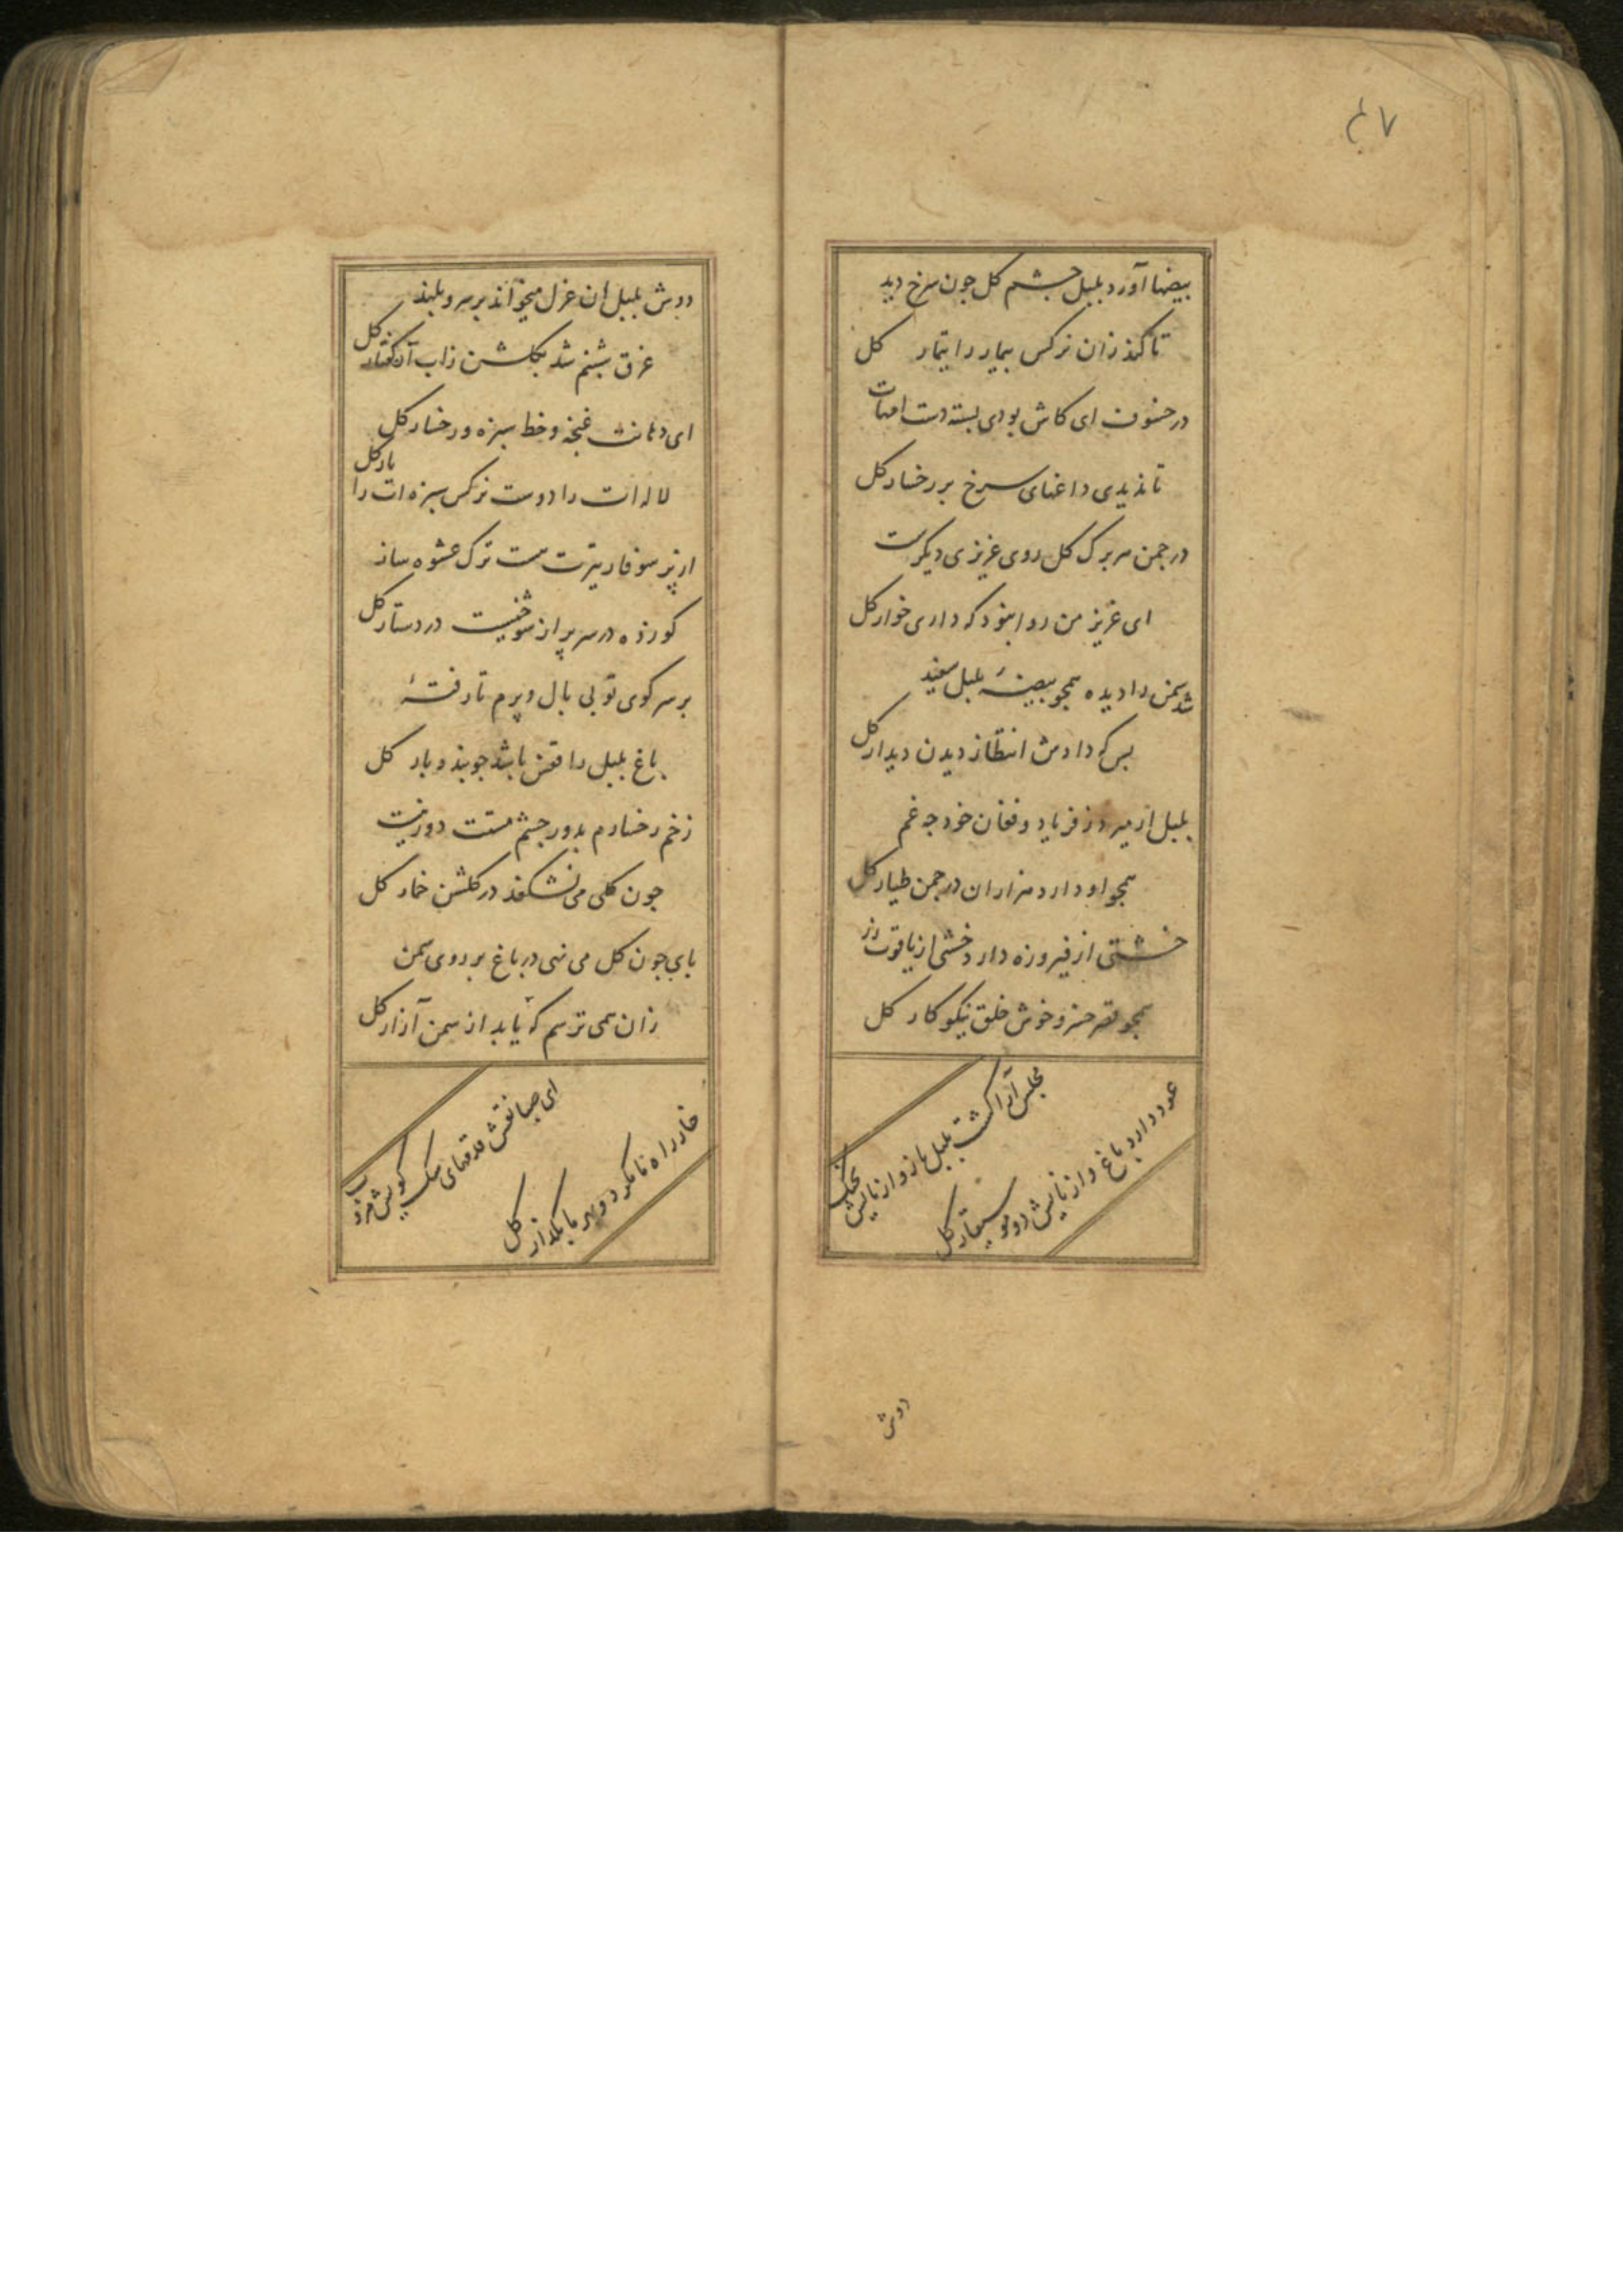 ۴۷
بیضها آورد بلبل چشم کل جون سرخ دید
تا کند زان نرکس بیمار را تیمار کل
در خسوف ای کاش بودی بسته دست امهات
تا ندیدی داغهای سرخ بر رخسار کل
در جمن هر برک کل روی عزیزی دیکرست
ای عزیز من روا نبود که داری خوار کل
شد سمن را دیده همجو بیضهٔ بلبل سفید
بس که دادش انتظار دیدن دیدار کل
بلبل از میرد ز فریاد و فغان خود جه غم
همجو او دارد هزاران در جمن طیار کل
خشتی از فیروزه دارد خشتی از یاقوت زر
همجو قصر خسرو خوش خلق نیکو کار کل
مجلس آرا کشت بلبل باز و از نالیش جنک
عود دارد باغ و از نایش دو موسیقار کل
دوش
دوش بلبل این غزل میخواند بر سرو بلند
غرق شبنم شد بکلشن زاب آن کفتار کل
ای دهانت غنجه و خط سبزه و رخسار کل
لاله ات را دوست نرکس سبزه ات را یار کل
از پر سوفار تیرت مست ترک عشوه ساز
کو زده در سر پر از شوخیست در دستار کل
بر سر کوی تو بی بال و پرم تا رفتهٔ
باغ بلبل را قفس باشد جو بندد بار کل
زخم رخسارم بدور جشم مستت دور نیست
جون کلی می نشکفد در کلشن خمار کل
بای جون کل می نهی در باغ بر روی سمن
زان همی ترسم که یابد از سمن آزار کل
ای صبا نقش قدمهای سک کویش مروب
خار راه ما مکرد و بهر ما مکذار کل